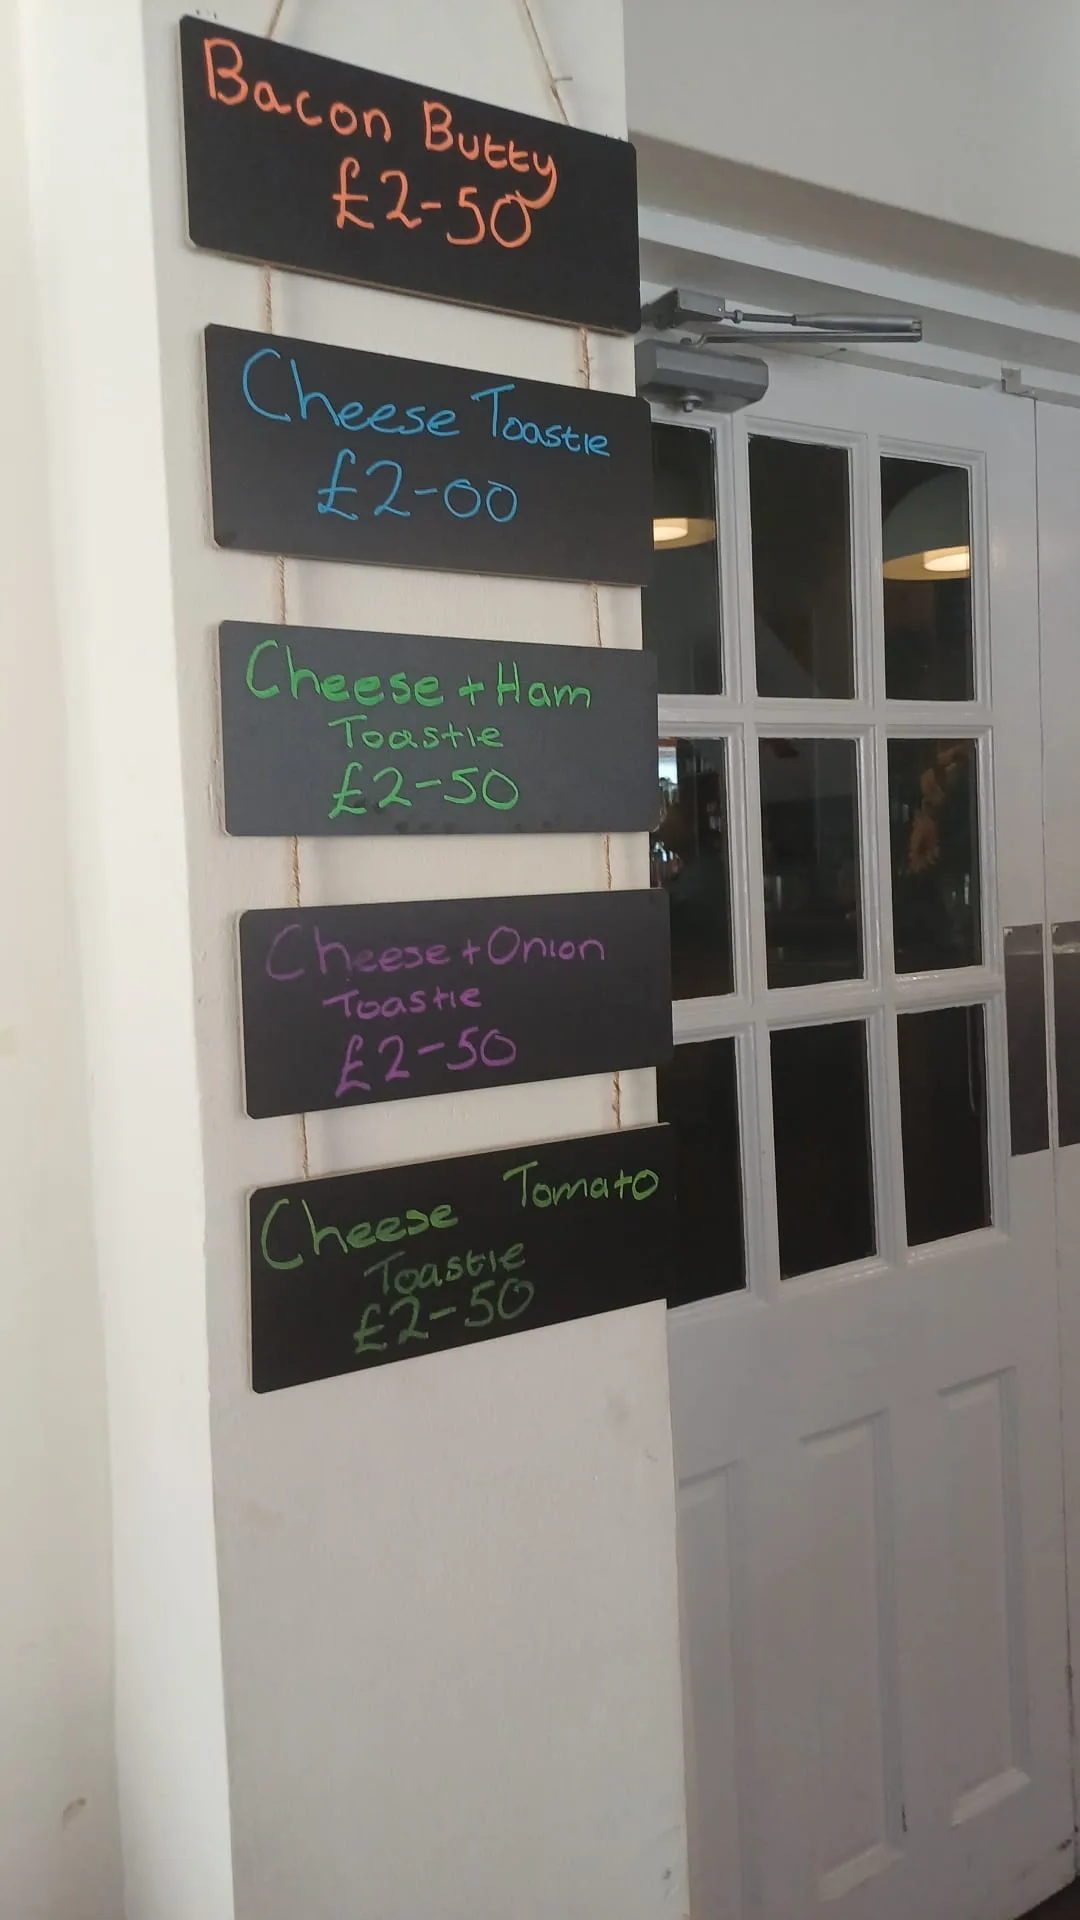 Bacon Butty
£2-50
Cheese Toastie
£2-00
Cheese + Ham
Toastie
£2-50
Cheese + Onion
Toastie
£2-50
Cheese Tomato
Toastie
£2-50